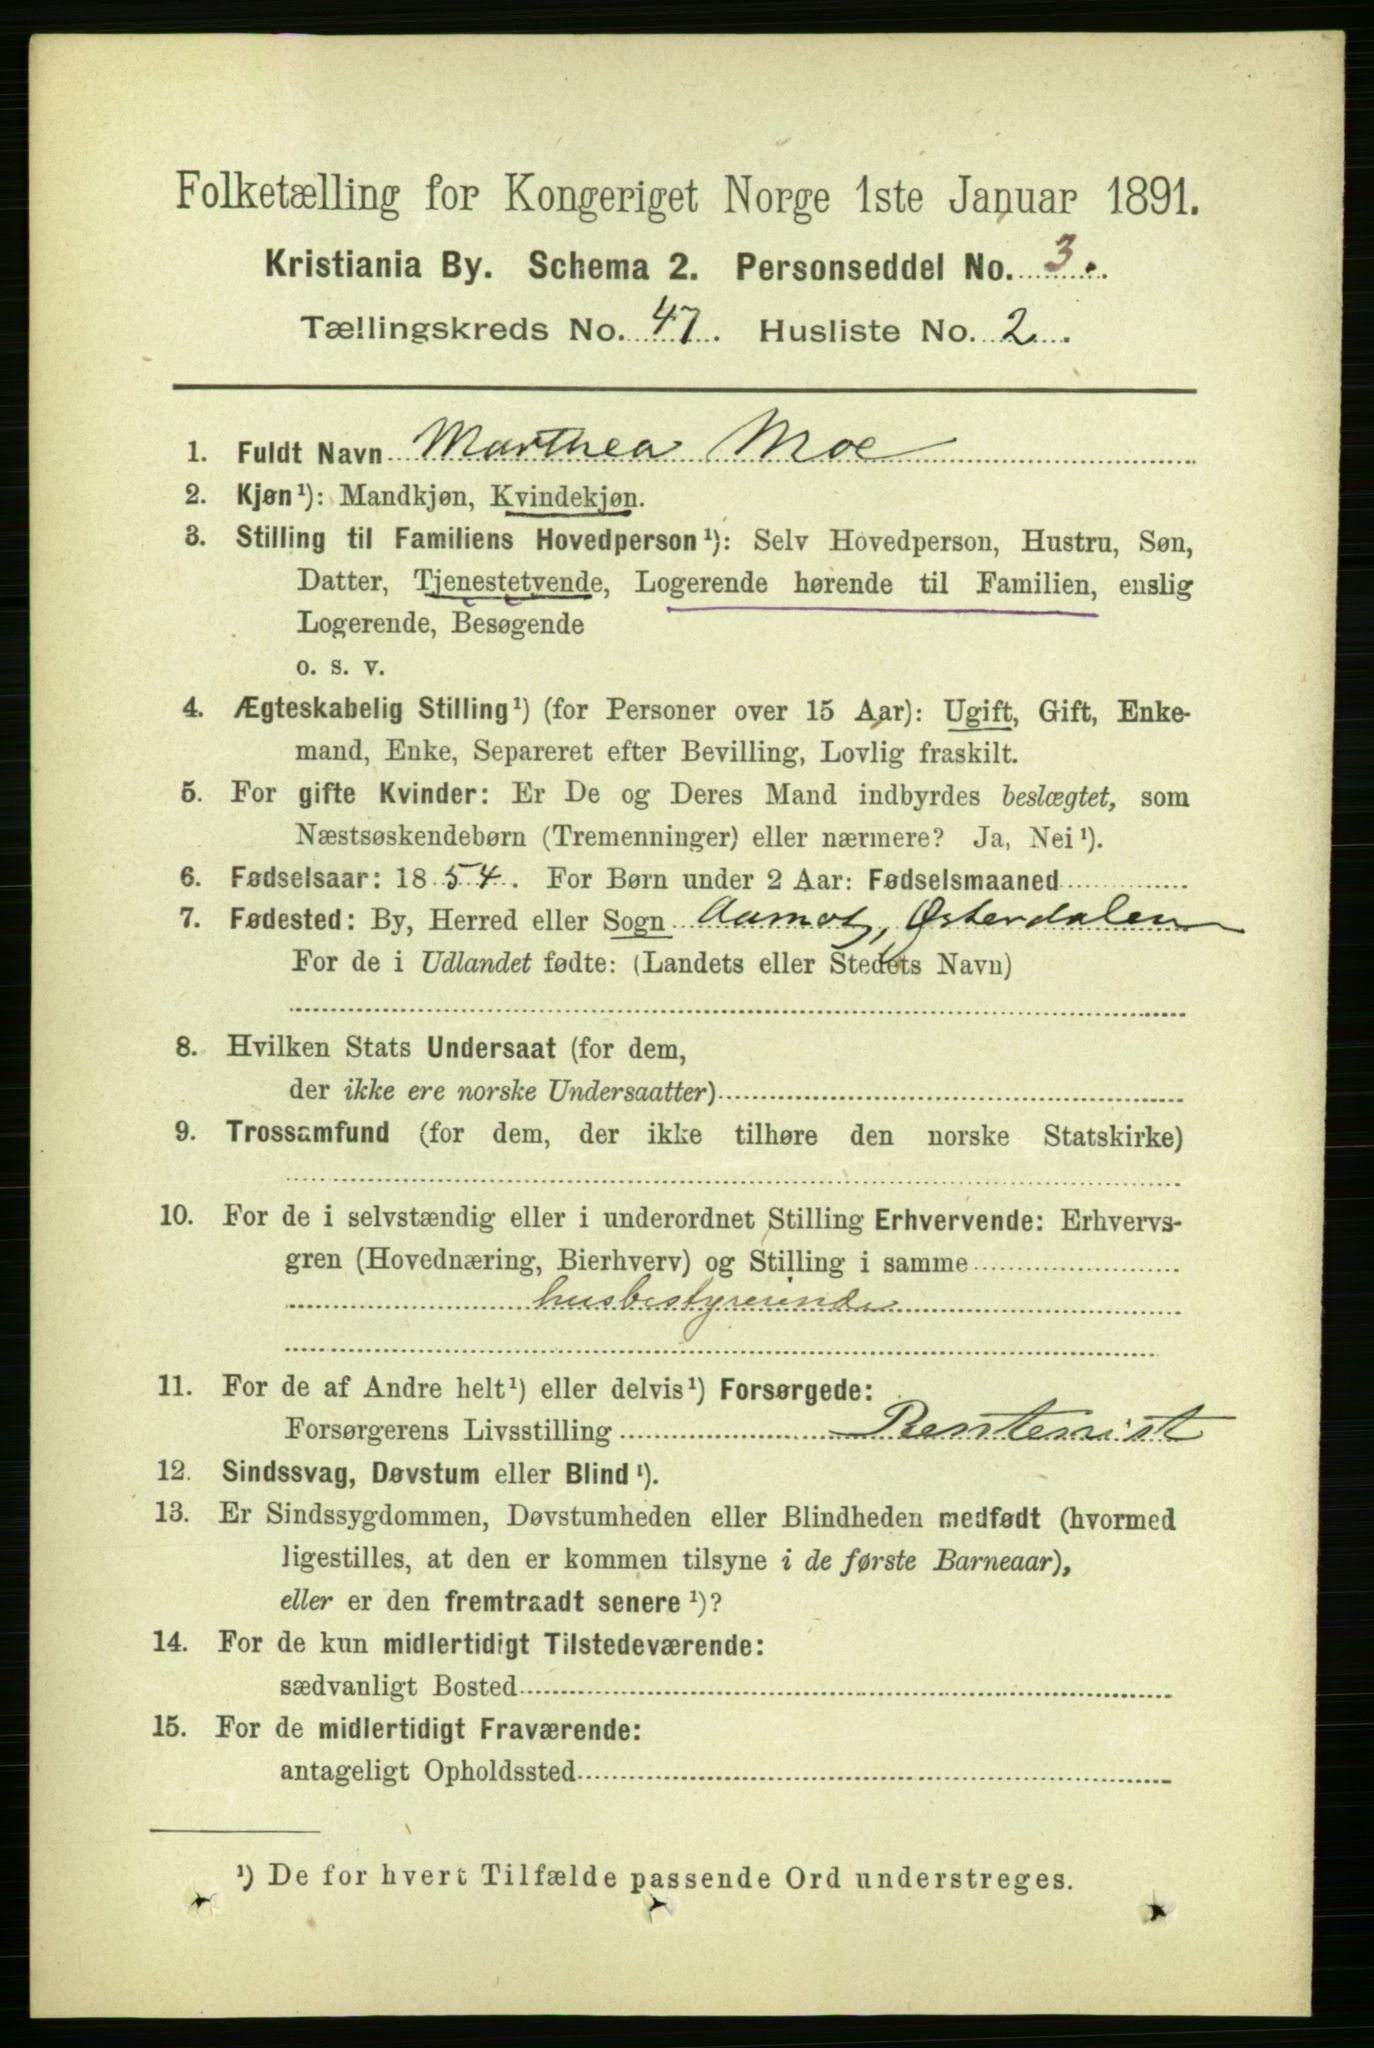 Folketælling for Kongeriget Norge 1ste Januar 1891.
Kristiania By. Schema 2. Personseddel No. 3.
Tællingskreds No. 47. Husliste No. 2.
1. Fuldt Navn Marthea Moe
2. Kjøn¹): Mandkjøn, Kvindekjøn.
3. Stilling til Familiens Hovedperson¹): Selv Hovedperson, Hustru, Søn,
Datter, Tjenestetyende, Logerende hørende til Familien, enslig
Logerende, Besøgende
o. s. v.
4. Ægteskabelig Stilling¹) (for Personer over 15 Aar): Ugift, Gift, Enke-
mand, Enke, Separeret efter Bevilling, Lovlig fraskilt.
5. For gifte Kvinder: Er De og Deres Mand indbyrdes beslægtet, som
Næstsøskendebørn (Tremenninger) eller nærmere? Ja, Nei¹).
6. Fødselsaar: 1854. For Børn under 2 Aar: Fødselsmaaned
7. Fødested: By, Herred eller Sogn Aamot, Østerdalen
For de i Udlandet fødte: (Landets eller Stedets Navn)
8. Hvilken Stats Undersaat (for dem,
der ikke ere norske Undersaatter)
9. Trossamfund (for dem, der ikke tilhøre den norske Statskirke)
10. For de i selvstændig eller i underordnet Stilling Erhvervende: Erhvervs-
gren (Hovednæring, Bierhverv) og Stilling i samme
husbestyrerinde
11. For de af Andre helt¹) eller delvis¹) Forsørgede:
Forsørgerens Livsstilling Rentenist
12. Sindssvag, Døvstum eller Blind¹).
13. Er Sindssygdommen, Døvstumheden eller Blindheden medfødt (hvormed
ligestilles, at den er kommen tilsyne i de første Barneaar),
eller er den fremtraadt senere¹)?
14. For de kun midlertidigt Tilstedeværende:
sædvanligt Bosted
15. For de midlertidigt Fraværende:
antageligt Opholdssted
¹) De for hvert Tilfælde passende Ord understreges.